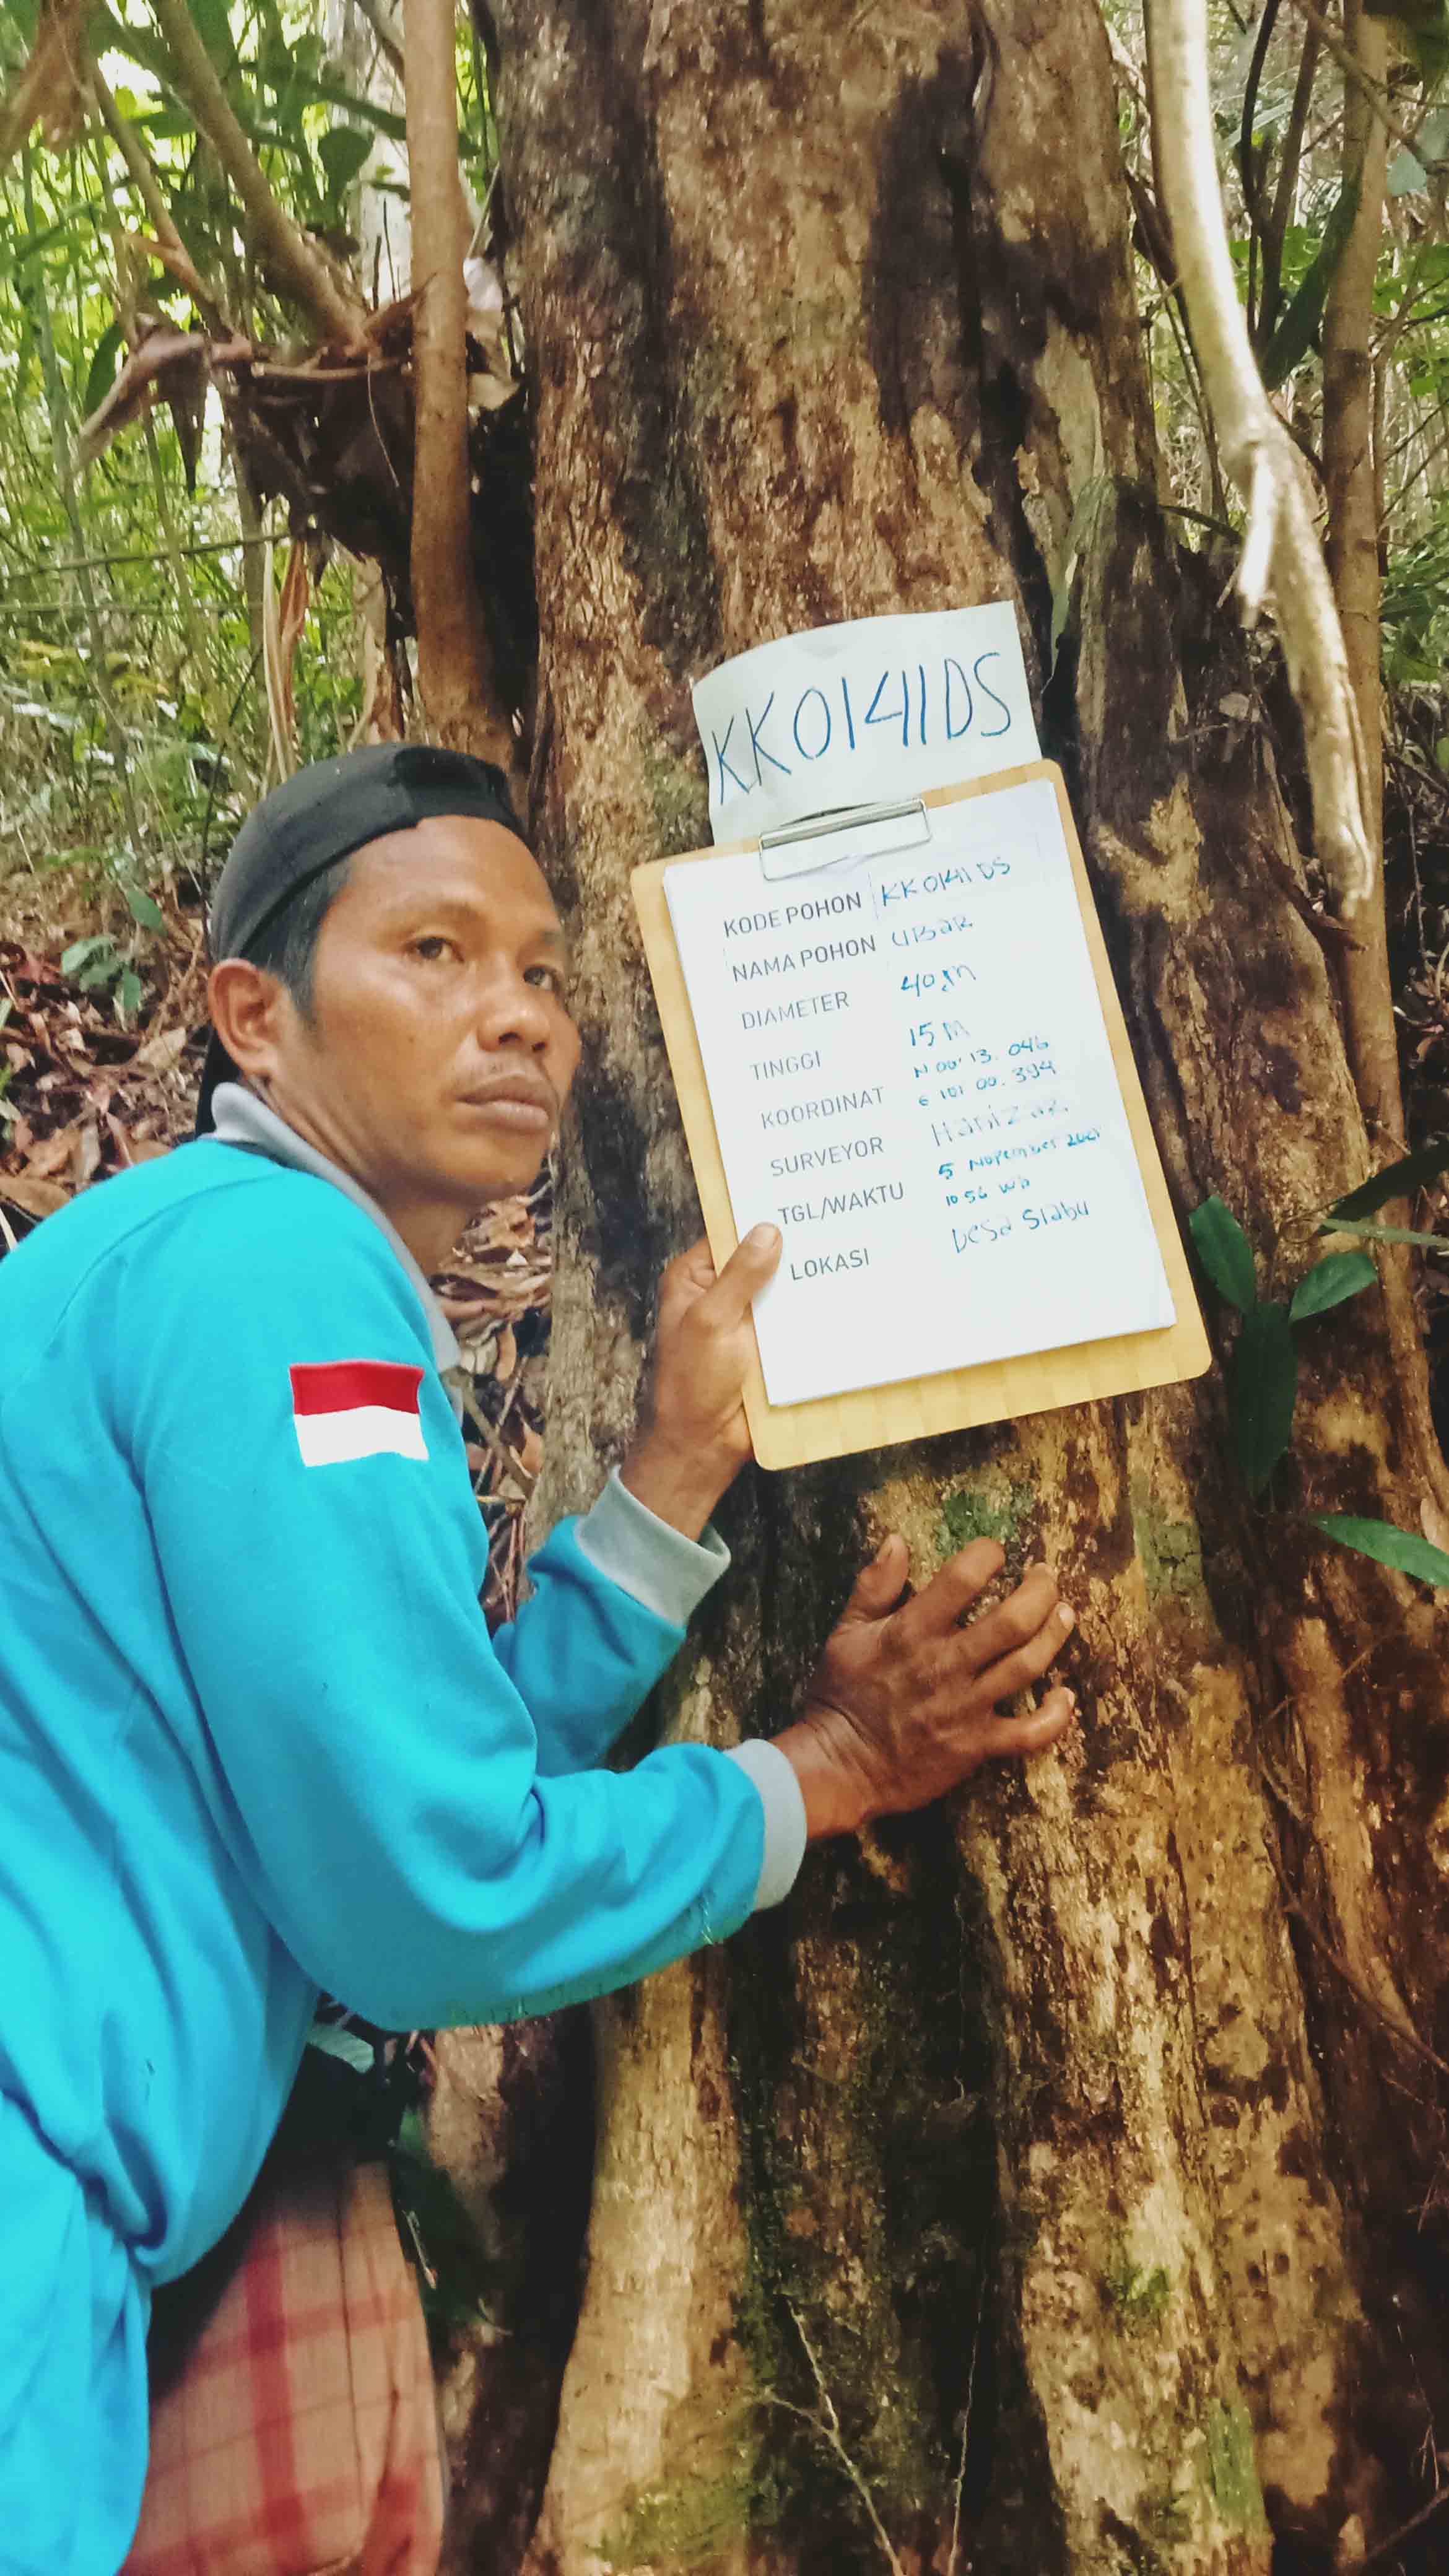 KK0141DS
KODE POHON KK0141 DS
NAMA POHON UBaR
DIAMETER
TINGGI 15 M
KOORDINAT N 00° 13. 046
E 101 00. 394
SURVEYOR Hanizar
TGL/WAKTU 5 November 2021
10 56 Wib
LOKASI Desa Siabu